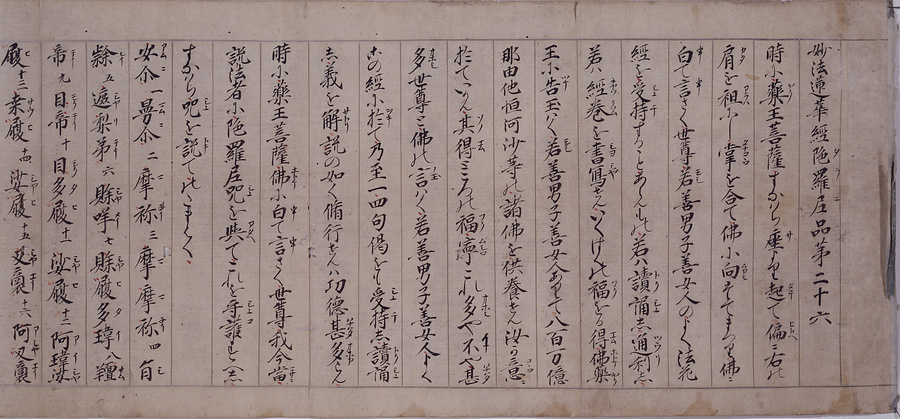 妙法蓮華經陁羅尼品第二十六
時小藥王菩薩すなわち座より起て偏ニ右の
肩を袒小し掌を合て佛小向たてまつて佛ニ
白て言さく世尊若善男子善女人のよく法花
經を受持することあらん若ハ讀誦し通利し
若ハ經卷を書寫せんいくばくの福をか得佛藥
王小告玉ハく若善男子善女人ありて八百万億
那由他恒河沙等の諸佛を供養せん汝か意
於ていかん其得ところの福寧これ多や不や甚
多世尊と佛の言ハく若善男子善女人よく
この經小於て乃至一四句偈をも受持し讀誦
し義を解説の如く脩行せんハ功德甚多らん
時小藥王菩薩佛小白て言さく世尊我今當
説法者小陁羅尼呪を與てこれを守護すへし
すなわち呪を説てのたまハく
安尒一曼尒二摩祢三摩摩祢四旨
隷五遮梨第六賖咩七賖履多瑋八羶
帝九目帝十目多履十一娑履十二阿瑋娑
履十三桒履十四娑履十五叉裔十六阿叉裔